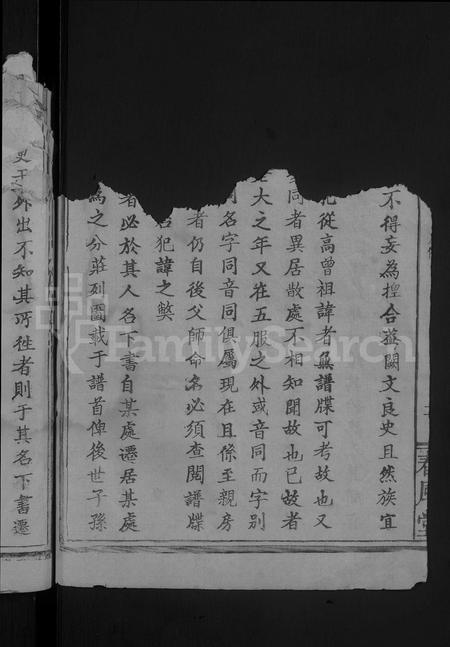 不得妄為揑合葢闕文良史且然族宜
犯從高曾祖諱者無譜牒可考故也又
同者異居散處不相知聞故也已故者
大之年又在五服之外或音同而字別
名字同音同俱屬現在且係至親房
者仍自後父師命名必須查閱譜牒
名犯諱之獘
者必於其人名下書自某處遷居某處
為之分莊列圖載于譜首俾後世子孫
外出不知其所徃者則于其名下書遷
春風堂
FamilySearch